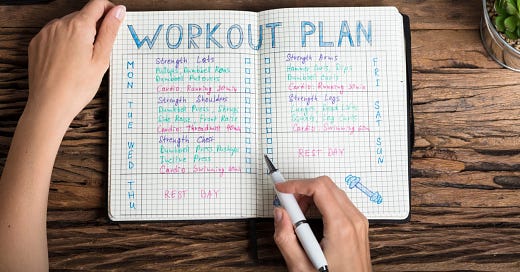 WORKOUT PLAN
MON
Strength Lats
Pullups, Dumbbell Rows
Dumbbell Pullovers
Cardio: Running 30min
TUE
Strength Shoulders
Dumbbell Press, Shrug
Side Raise, Front Raise
Cardio: Threadmill
WED
Strength Chest
Dumbbell Press, Pushups
Incline Press
Cardio: Swimming
THU
REST DAY
FRI
Strength Arms
Hammer Curls, Dips
Dumbbell Curls
Cardio: Running
SAT
Strength Legs
Lunges, Dead Lifts
Squats, Leg Curls
Cardio: Swimming
SUN
REST DAY